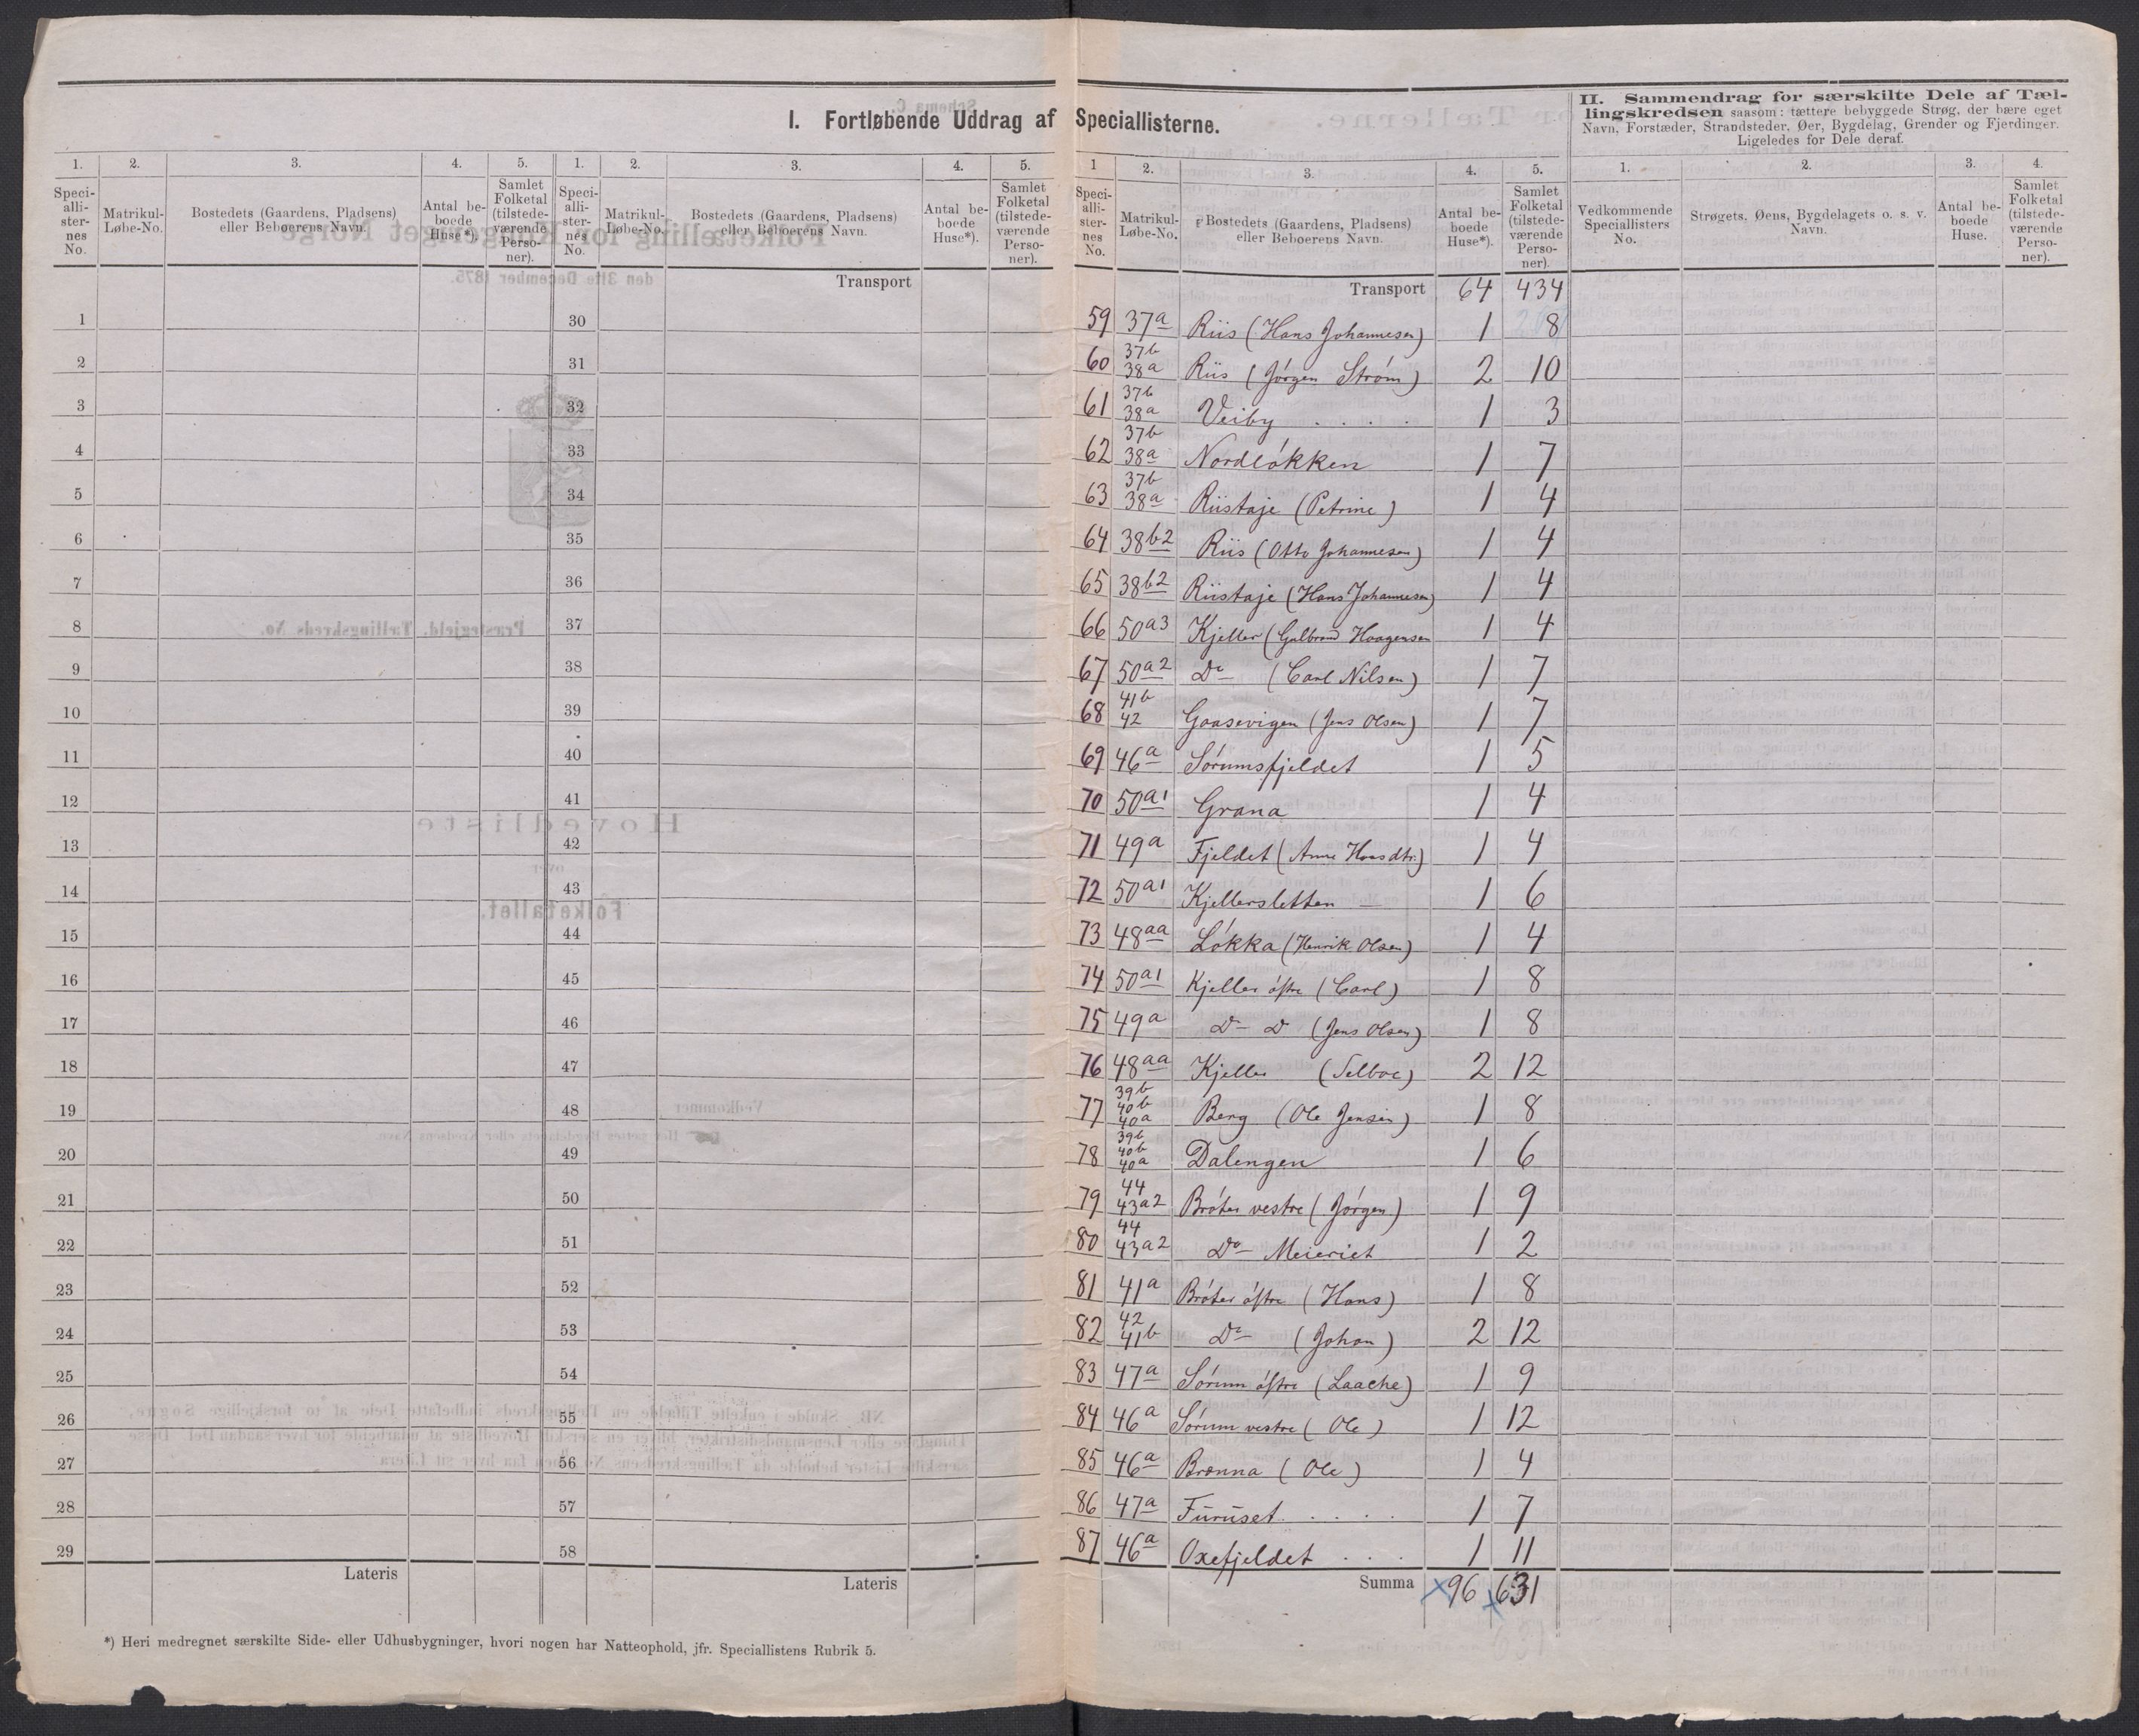 I. Fortløbende Uddrag af Speciallisterne.
II. Sammendrag for særskilte Dele af Tæl-
lingskredsen saasom: tættere bebyggede Strøg, der bære eget
Navn, Forstæder, Strandsteder, Øer, Bygdelag, Grender og Fjerdinger.
Ligeledes for Dele deraf.
1. 2. 3. 4. 5. 1. 2. 3. 4. 5.
Speci-alli-ster-nes No. Matrikul-Løbe-No. Bostedets (Gaardens, Pladsens) eller Beboerens Navn. Antal be-boede Huse*). Samlet Folketal (tilstede-værende Perso-ner).
Speci-alli-ster-nes No. Matrikul-Løbe-No. Bostedets (Gaardens, Pladsens) eller Beboerens Navn. Antal be-boede Huse*). Samlet Folketal (tilstede-værende Perso-ner).
Transport
1 30
2 31
3 32
4 33
5 34
6 35
7 36
8 37
9 38
10 39
11 40
12 41
13 42
14 43
15 44
16 45
17 46
18 47
19 48
20 49
21 50
22 51
23 52
24 53
25 54
26 55
27 56
28 57
29 58
Lateris Lateris
*) Heri medregnet særskilte Side- eller Udhusbygninger, hvori nogen har Natteophold, jfr. Speciallistens Rubrik 5.
1 2. 3. 4. 5. 1. 2. 3. 4.
Speci-alli-ster-nes No. Matrikul-Løbe-No. Bostedets (Gaardens, Pladsens) eller Beboerens Navn. Antal be-boede Huse*). Samlet Folketal (tilstede-værende Perso-ner).
Vedkommende Speciallisters No. Strøgets, Øens, Bygdelagets o. s. v. Navn. Antal be-boede Huse. Samlet Folketal (tilstede-værende Perso-ner).
Transport 64 434
59 37a Riis (Hans Johannesen) 1 8
60 37b 38a Riis (Jörgen Ström) 2 10
61 37b 38a Veiby . . . . 1 3
62 37b 38a Nordlökken 1 7
63 37b 38a Riistaje (Petrine) 1 4
64 38b2 Riis (Otto Johannesen) 1 4
65 38b2 Riistaje (Hans Johannesen) 1 4
66 50a3 Kjeller (Gulbrand Haagensen 1 4
67 50a2 Do (Carl Nilsen) 1 7
68 41b 42 Gaasevigen (Jens Olsen) 1 7
69 46a Sörumsfjeldet 1 5
70 50a1 Grana 1 4
71 49a Fjeldet (Anne Hansdtr.) 1 4
72 50a1 Kjellersletten 1 6
73 48aa Lökka (Henrik Olsen) 1 4
74 50a1 Kjeller östre (Carl) 1 8
75 49a D D (Jens Olsen) 1 8
76 48aa Kjeller (Selboe) 2 12
77 39b 40b 40a Berg (Ole Jensen) 1 8
78 39b 40b 40a Dalengen 1 6
79 44 43a2 Bröter vestre (Jörgen) 1 9
80 44 43a2 Do Meieriet 1 2
81 41a Bröter östre (Hans) 1 8
82 42 41b Do (Johan) 2 12
83 47a Sörum östre (Laache) 1 9
84 46a Sörum vestre (Ole) 1 12
85 46a Brænna (Ole) 1 4
86 47a Furuset . . . . 1 7
87 46a Oxefjeldet . . . 1 11
Summa 96 631